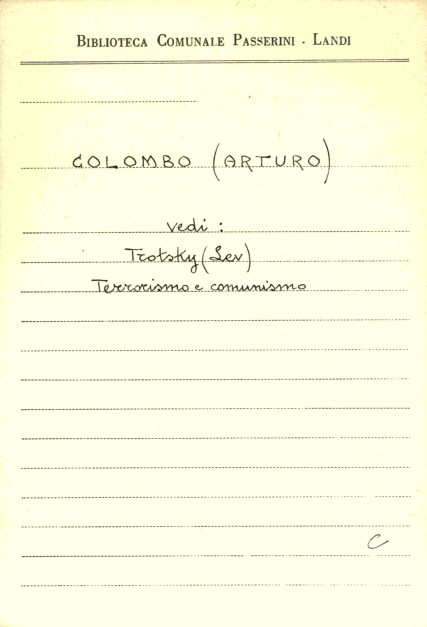 BIBLIOTECA COMUNALE PASSERINI - LANDI
COLOMBO (ARTURO)
vedi :
Trotsky (Lev)
Terrorismo e comunismo
C